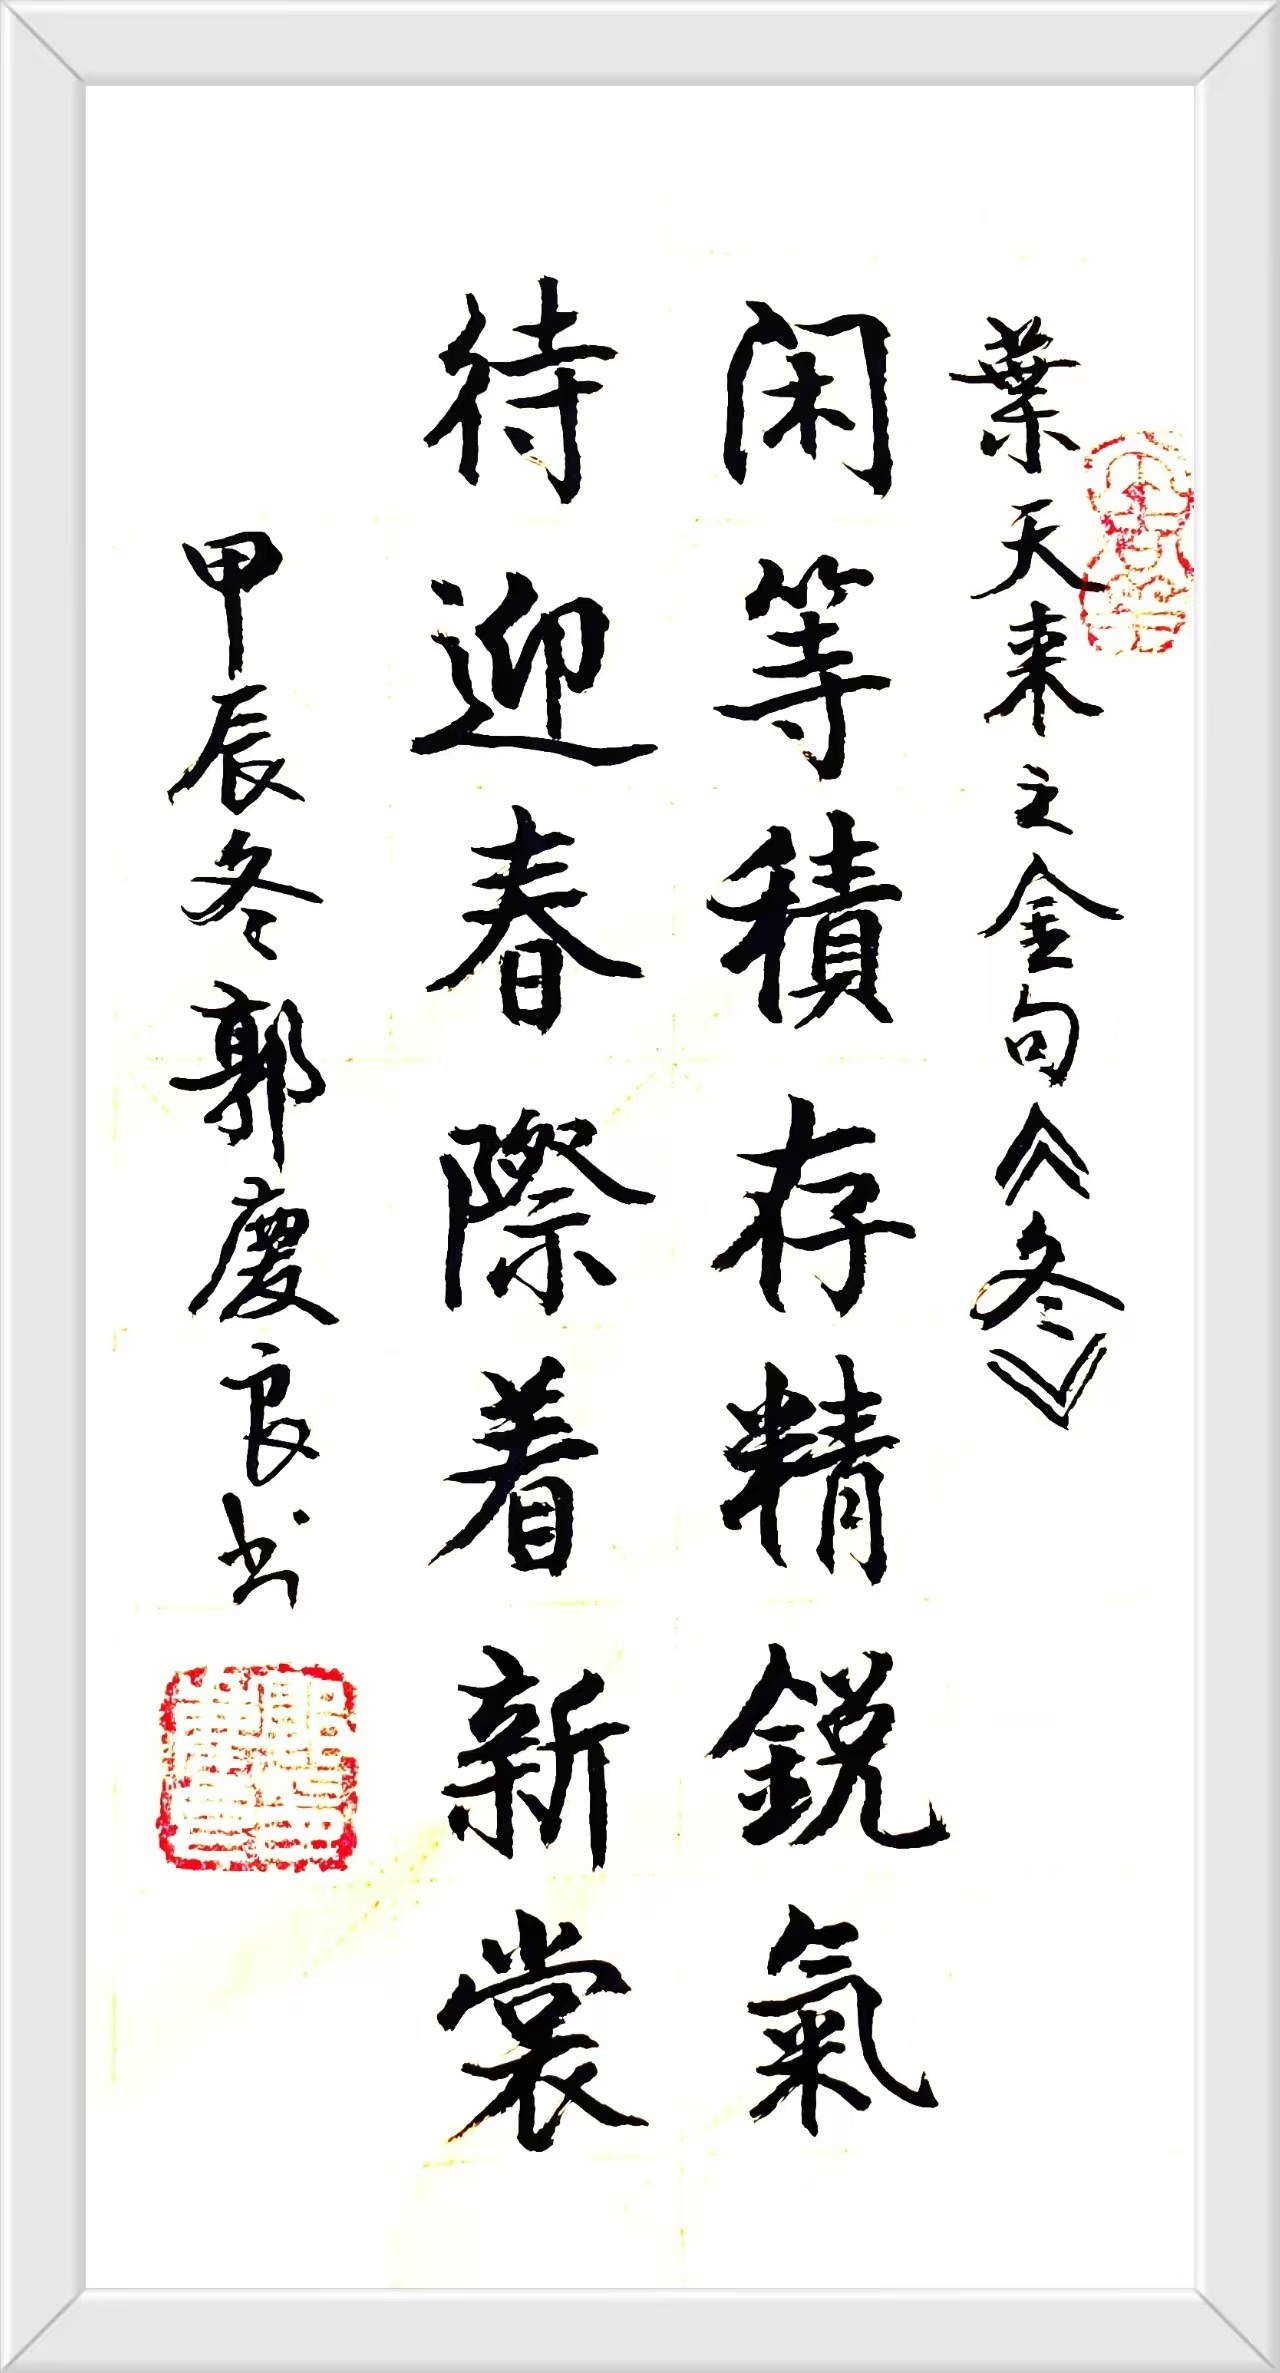 葉天来之金句《冬》
闲等積存精鋭氣
待迎春際着新裳
甲辰冬郭慶良书